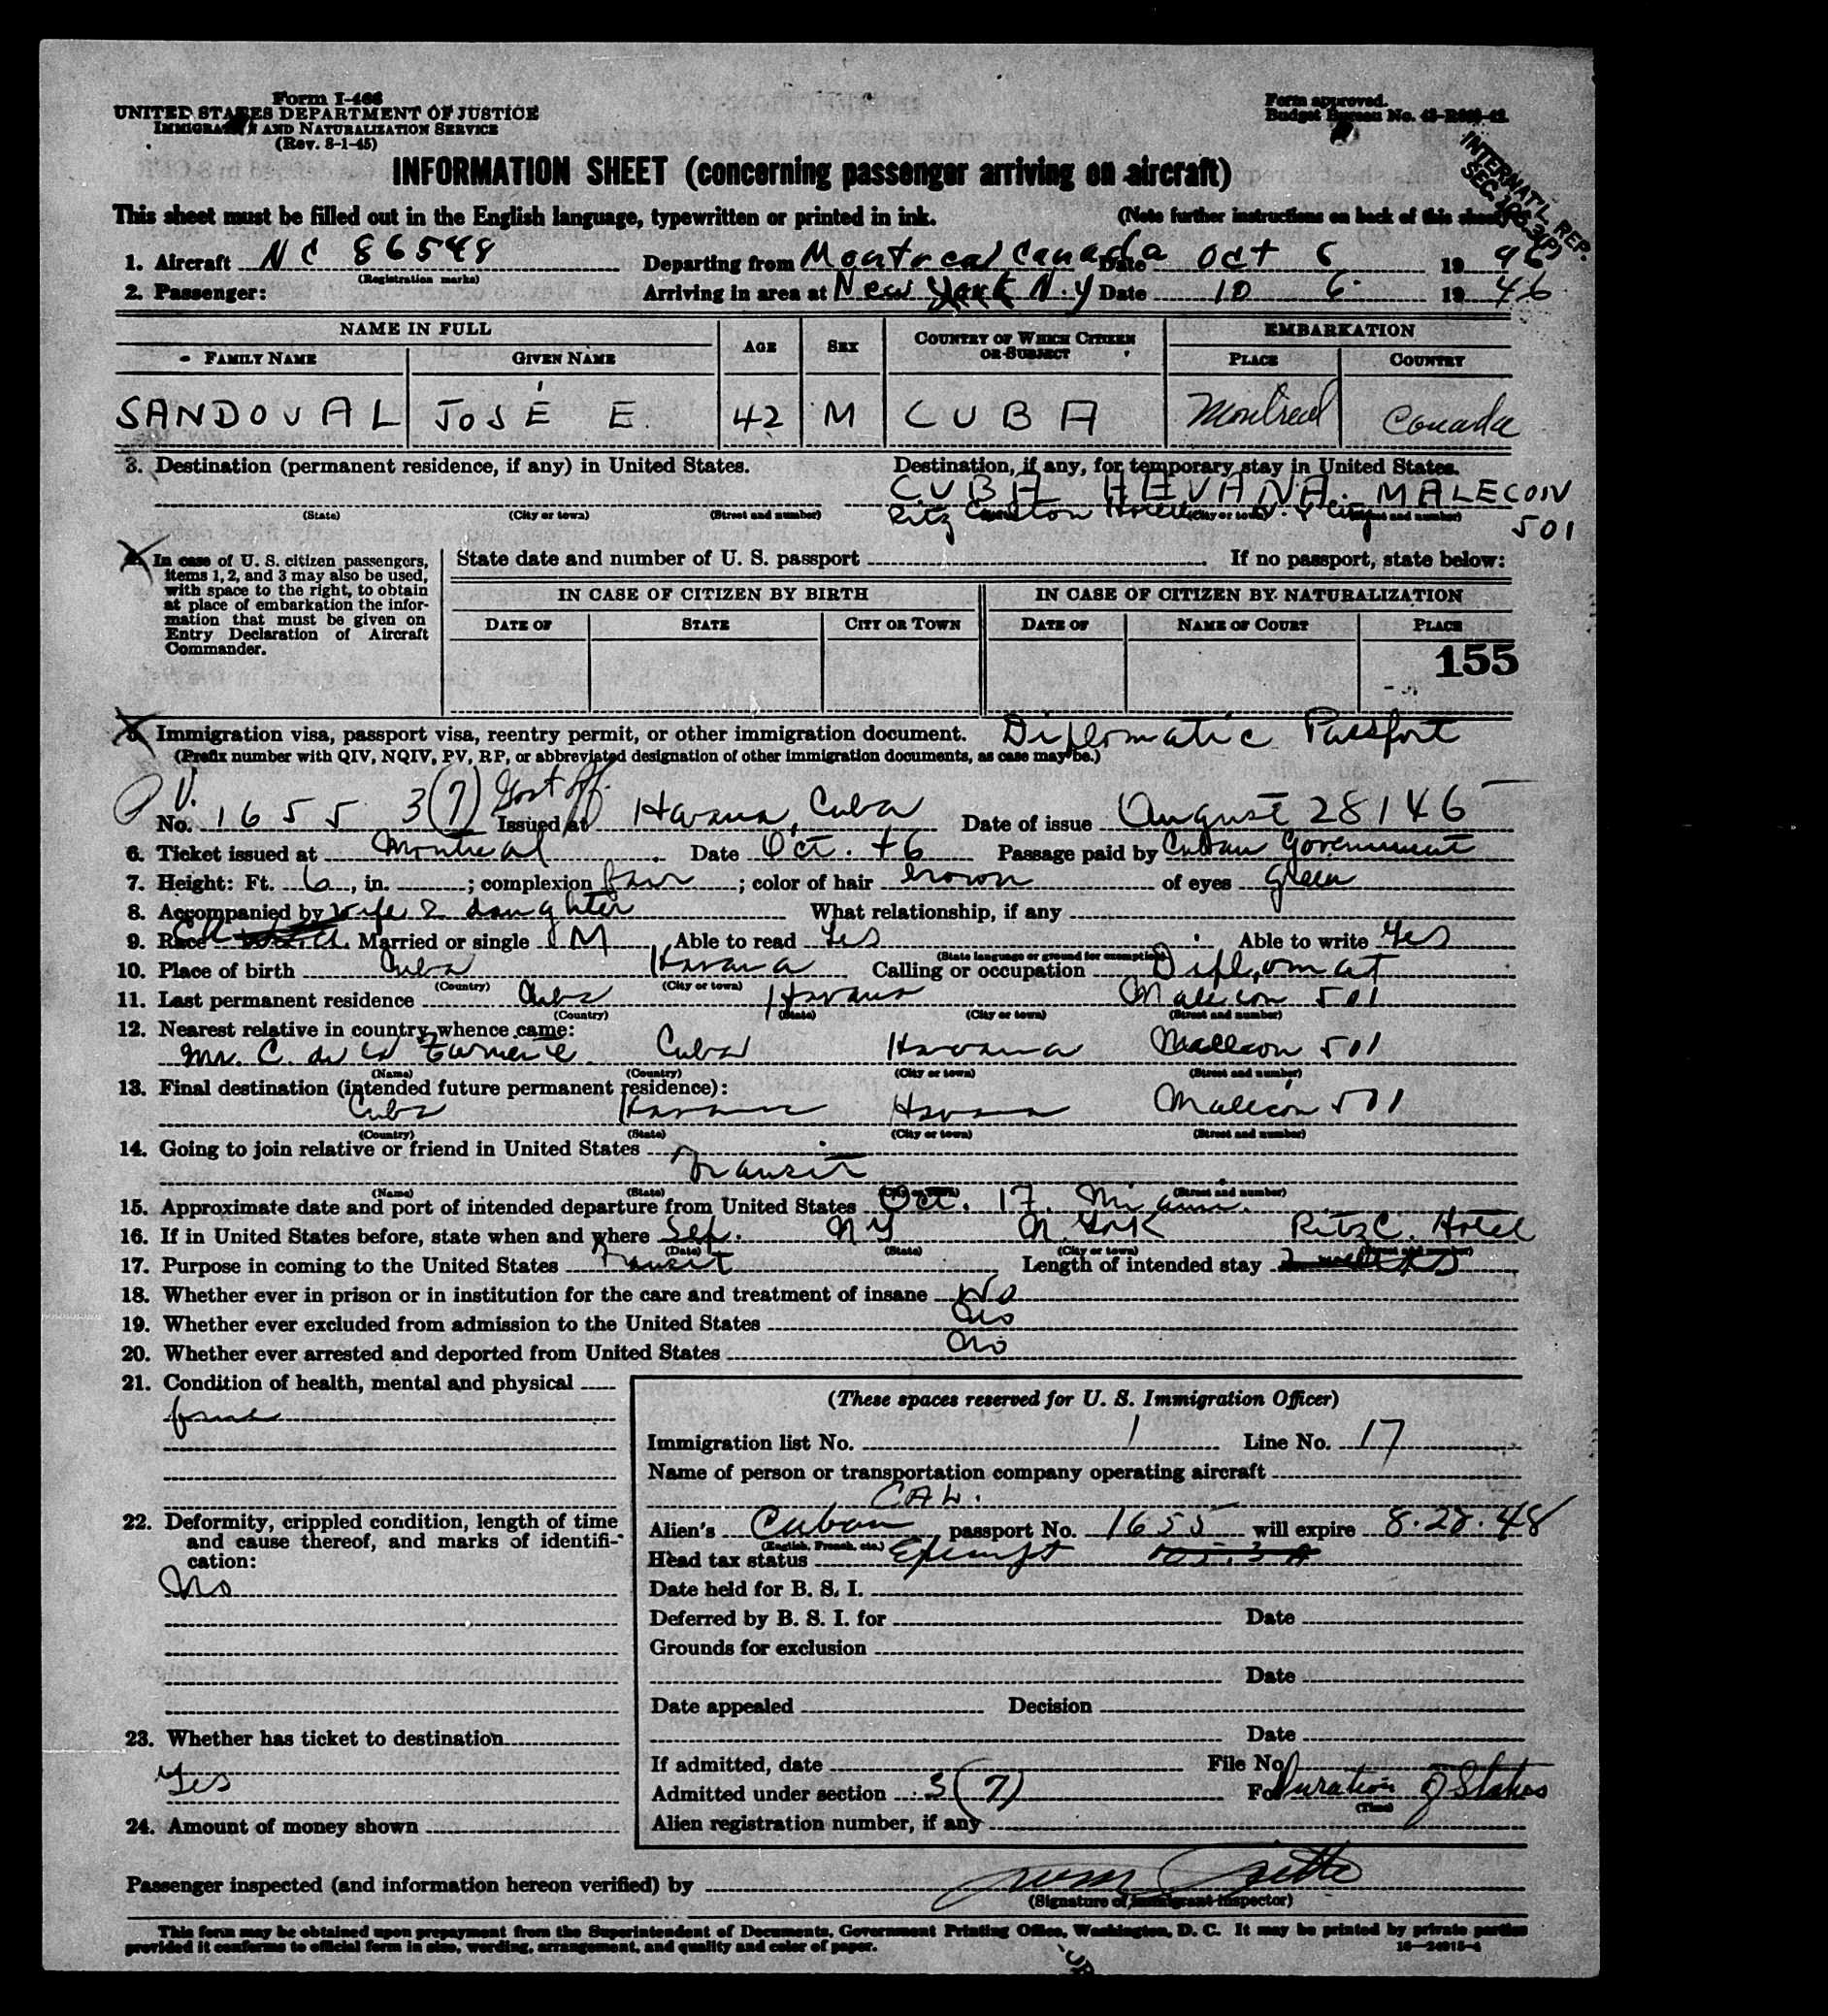 Form I-466
UNITED STATES DEPARTMENT OF JUSTICE
IMMIGRATION AND NATURALIZATION SERVICE
(Rev. 8-1-45)
Form approved.
Budget Bureau No.
INTERNAT'L. REP.
INFORMATION SHEET (concerning passenger arriving on aircraft)
This sheet must be filled out in the English language, typewritten or printed in ink. (Note further instructions on back of this sheet)
1. Aircraft NC 86548 Departing from Montreal Canada Date Oct 6 1946
(Registration marks)
2. Passenger: Arriving in area at New York N.Y Date 10 6 1946
NAME IN FULL AGE SEX COUNTRY OF WHICH CITIZEN OR SUBJECT EMBARKATION
FAMILY NAME GIVEN NAME PLACE COUNTRY
SANDOVAL JOSÉ E. 42 M CUBA Montreal Canada
3. Destination (permanent residence, if any) in United States. Destination, if any, for temporary stay in United States.
CUBA HEVANA. MALECON
501
(State) (City or town) (Street and number) Ritz Carlton Hotel (City or town) N.Y City (Street and number)
4. In case of U. S. citizen passengers, items 1, 2, and 3 may also be used, with space to the right, to obtain at place of embarkation the information that must be given on Entry Declaration of Aircraft Commander.
State date and number of U. S. passport If no passport, state below:
IN CASE OF CITIZEN BY BIRTH IN CASE OF CITIZEN BY NATURALIZATION
DATE OF STATE CITY OR TOWN DATE OF NAME OF COURT PLACE
155
5. Immigration visa, passport visa, reentry permit, or other immigration document. Diplomatic Passport
(Prefix number with QIV, NQIV, PV, RP, or abbreviated designation of other immigration documents, as case may be.)
P.V.
No. 1655 3(7) Govt off. Issued at Havana, Cuba Date of issue August 28/46
6. Ticket issued at Montreal Date Oct. 46 Passage paid by Cuban Government
7. Height: Ft. 6, in. ; complexion fair ; color of hair brown of eyes green
8. Accompanied by wife & daughter What relationship, if any
9. Race Married or single M Able to read Yes Able to write Yes
(State language or ground for exemption)
10. Place of birth Cuba Havana Calling or occupation Diplomat
(Country) (City or town)
11. Last permanent residence Cuba Havana Malecon 501
(Country) (State) (City or town) (Street and number)
12. Nearest relative in country whence came:
Mrs. C. de la Cuba Havana Malecon 501
(Name) (Country) (City or town) (Street and number)
13. Final destination (intended future permanent residence):
Cuba Havana Havana Malecón 501
(Country) (State) (City or town) (Street and number)
14. Going to join relative or friend in United States
Transit
(Name) (State) (City or town) (Street and number)
15. Approximate date and port of intended departure from United States Oct. 17. Miami.
16. If in United States before, state when and where Sep. N Y N. York Ritz C. Hotel
(Date) (State) (City or town) (Street and number)
17. Purpose in coming to the United States Transit Length of intended stay
18. Whether ever in prison or in institution for the care and treatment of insane No
19. Whether ever excluded from admission to the United States No
20. Whether ever arrested and deported from United States No
21. Condition of health, mental and physical
22. Deformity, crippled condition, length of time and cause thereof, and marks of identification:
No
23. Whether has ticket to destination
Yes
24. Amount of money shown
(These spaces reserved for U. S. Immigration Officer)
Immigration list No. 1 Line No. 17
Name of person or transportation company operating aircraft
CAL.
Alien's Cuban passport No. 1655 will expire 8.28.48
(English, French, etc.)
Head tax status Exempt
Date held for B. S. I.
Deferred by B. S. I. for Date
Grounds for exclusion
Date
Date appealed Decision
Date
If admitted, date File No.
Admitted under section 3(7) For Duration of Status
(Time)
Alien registration number, if any
Passenger inspected (and information hereon verified) by
(Signature of Immigrant Inspector)
This form may be obtained upon prepayment from the Superintendent of Documents, Government Printing Office, Washington, D. C. It may be printed by private parties
provided it conforms to official form in size, wording, arrangement, and quality and color of paper.